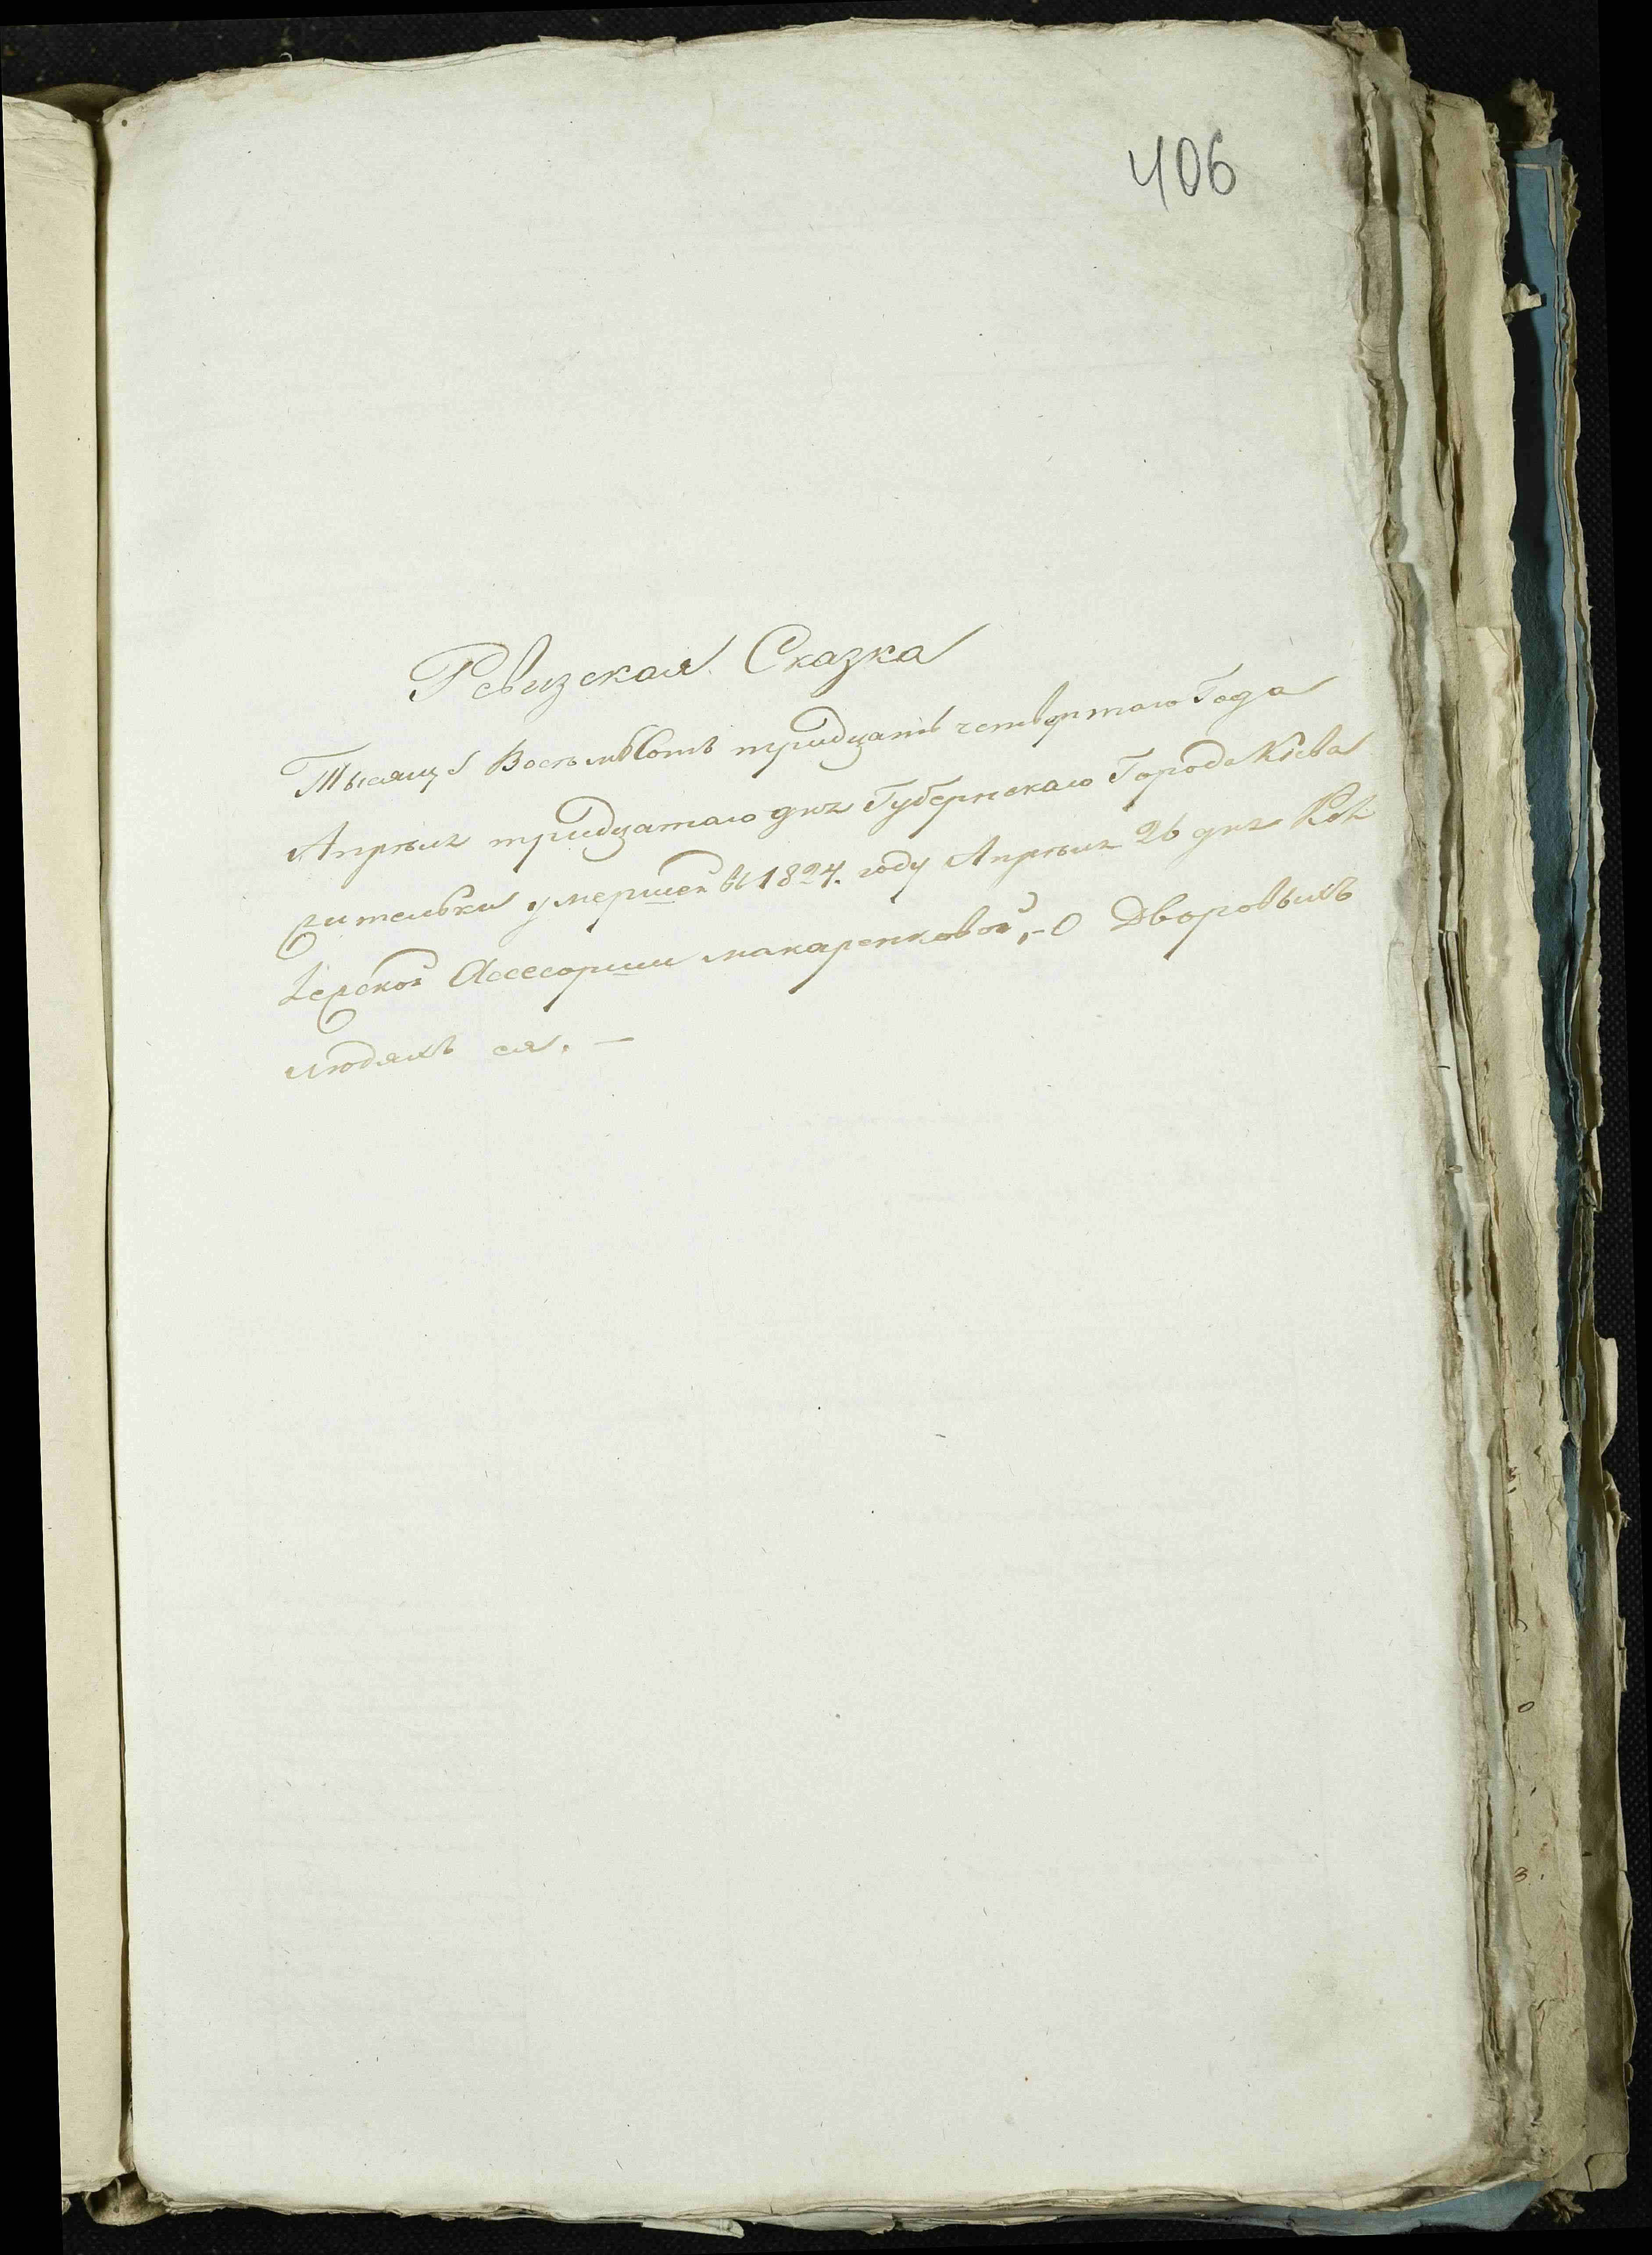 406
Ревизская Сказка
Тысяща Восемьсотъ тридцать четвертаго Года
Апрѣля тридцатаго дня Губернскаго Города Кіева
жительки умершей въ 1824. году Апрѣля 26 дня Кол:
жской Асессорши макаренковой, - О Дворовыхъ
людяхъ ея. —